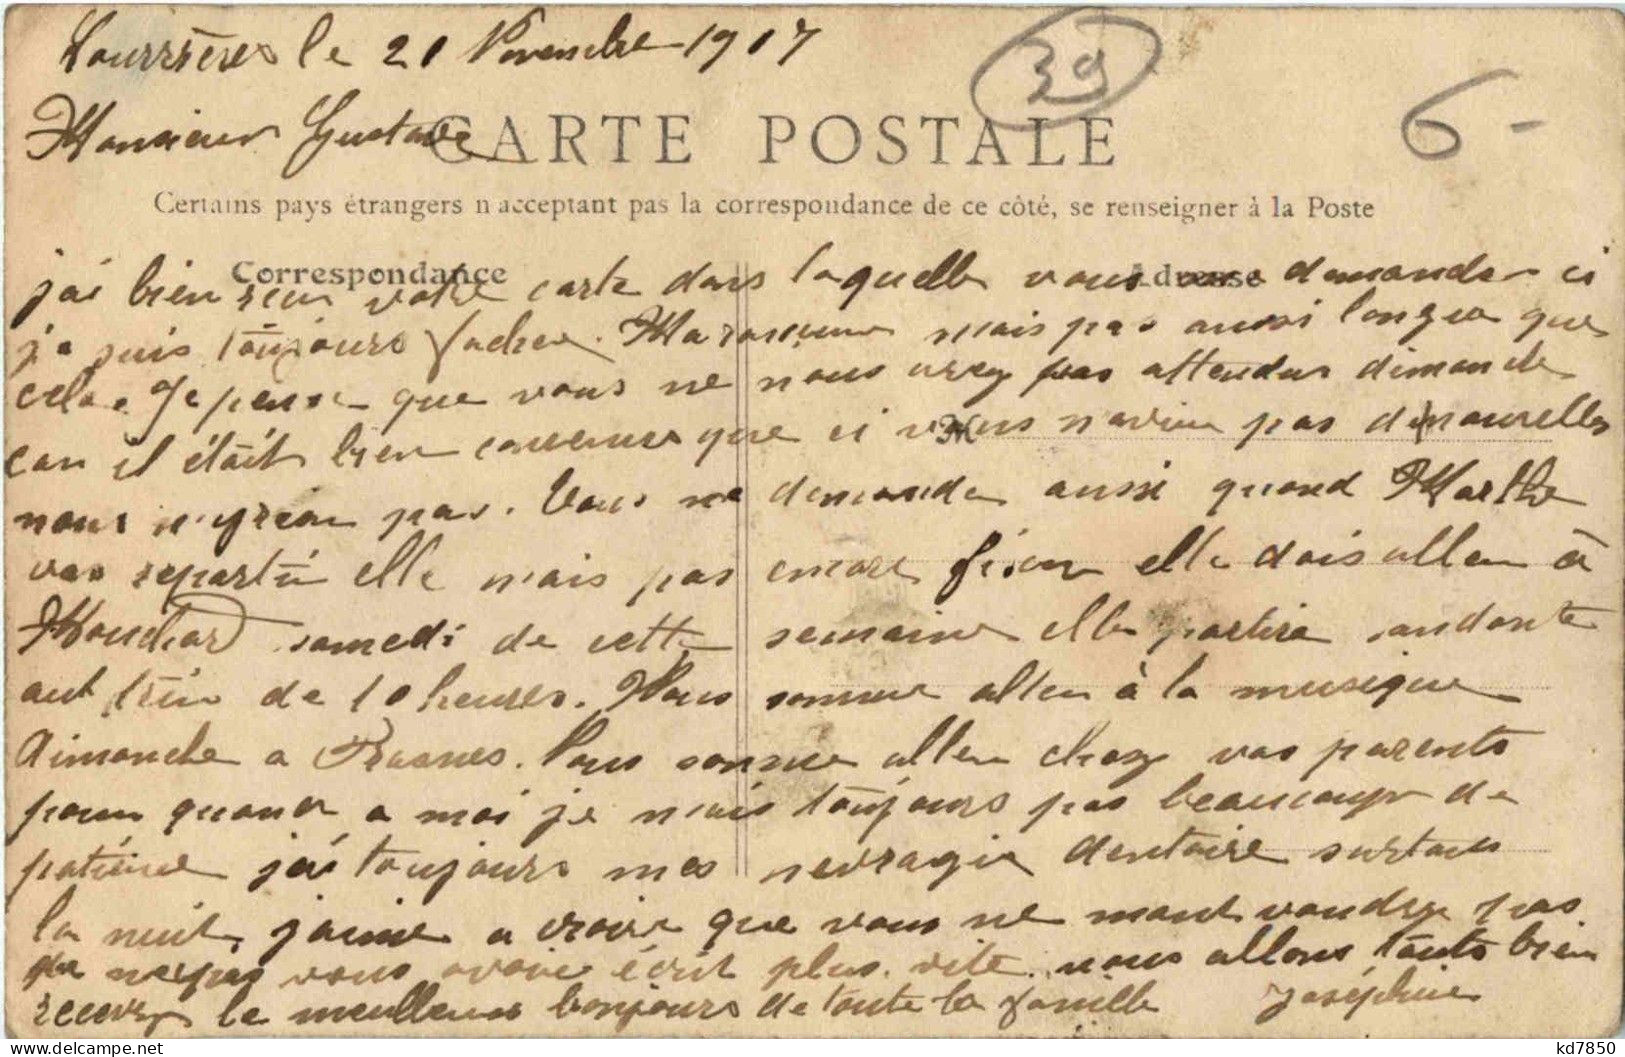 le 21 Novembre 1907
39
6 -
Monsieur Gustave
CARTE POSTALE
Certains pays étrangers n'acceptant pas la correspondance de ce côté, se renseigner à la Poste
Correspondance
Adresse
jai bien recu votre carte dans laquelle vous demander ci
je suis toujours facher. mais pas aussi longue que
cela. Je pense que vous ne nous avez pas attendus dimanche
car il était bien convenus que ci vous navier pas de nouvelles
nous niyrion pas. Vous me demander aussi quand Marthe
vas repartir elle mais pas encore elle dois aller à
Mouchard samedi de cette semaine elle partira
aut train de 10 heures. Nous somme aller à la musique
dimanche a Nous somme aller chez vos parents
pour quand a moi je nais toujours pas beaucoup de
patience jai toujours mes nevragie dentaire surtous
la nuit, jaime a croire que vous ne mant voudrez pas
de ne pas vous avoir écrit plus vite. nous allons touts bien
recevez le meilleurs bonjours de toute la famille Joséphine
kd7850